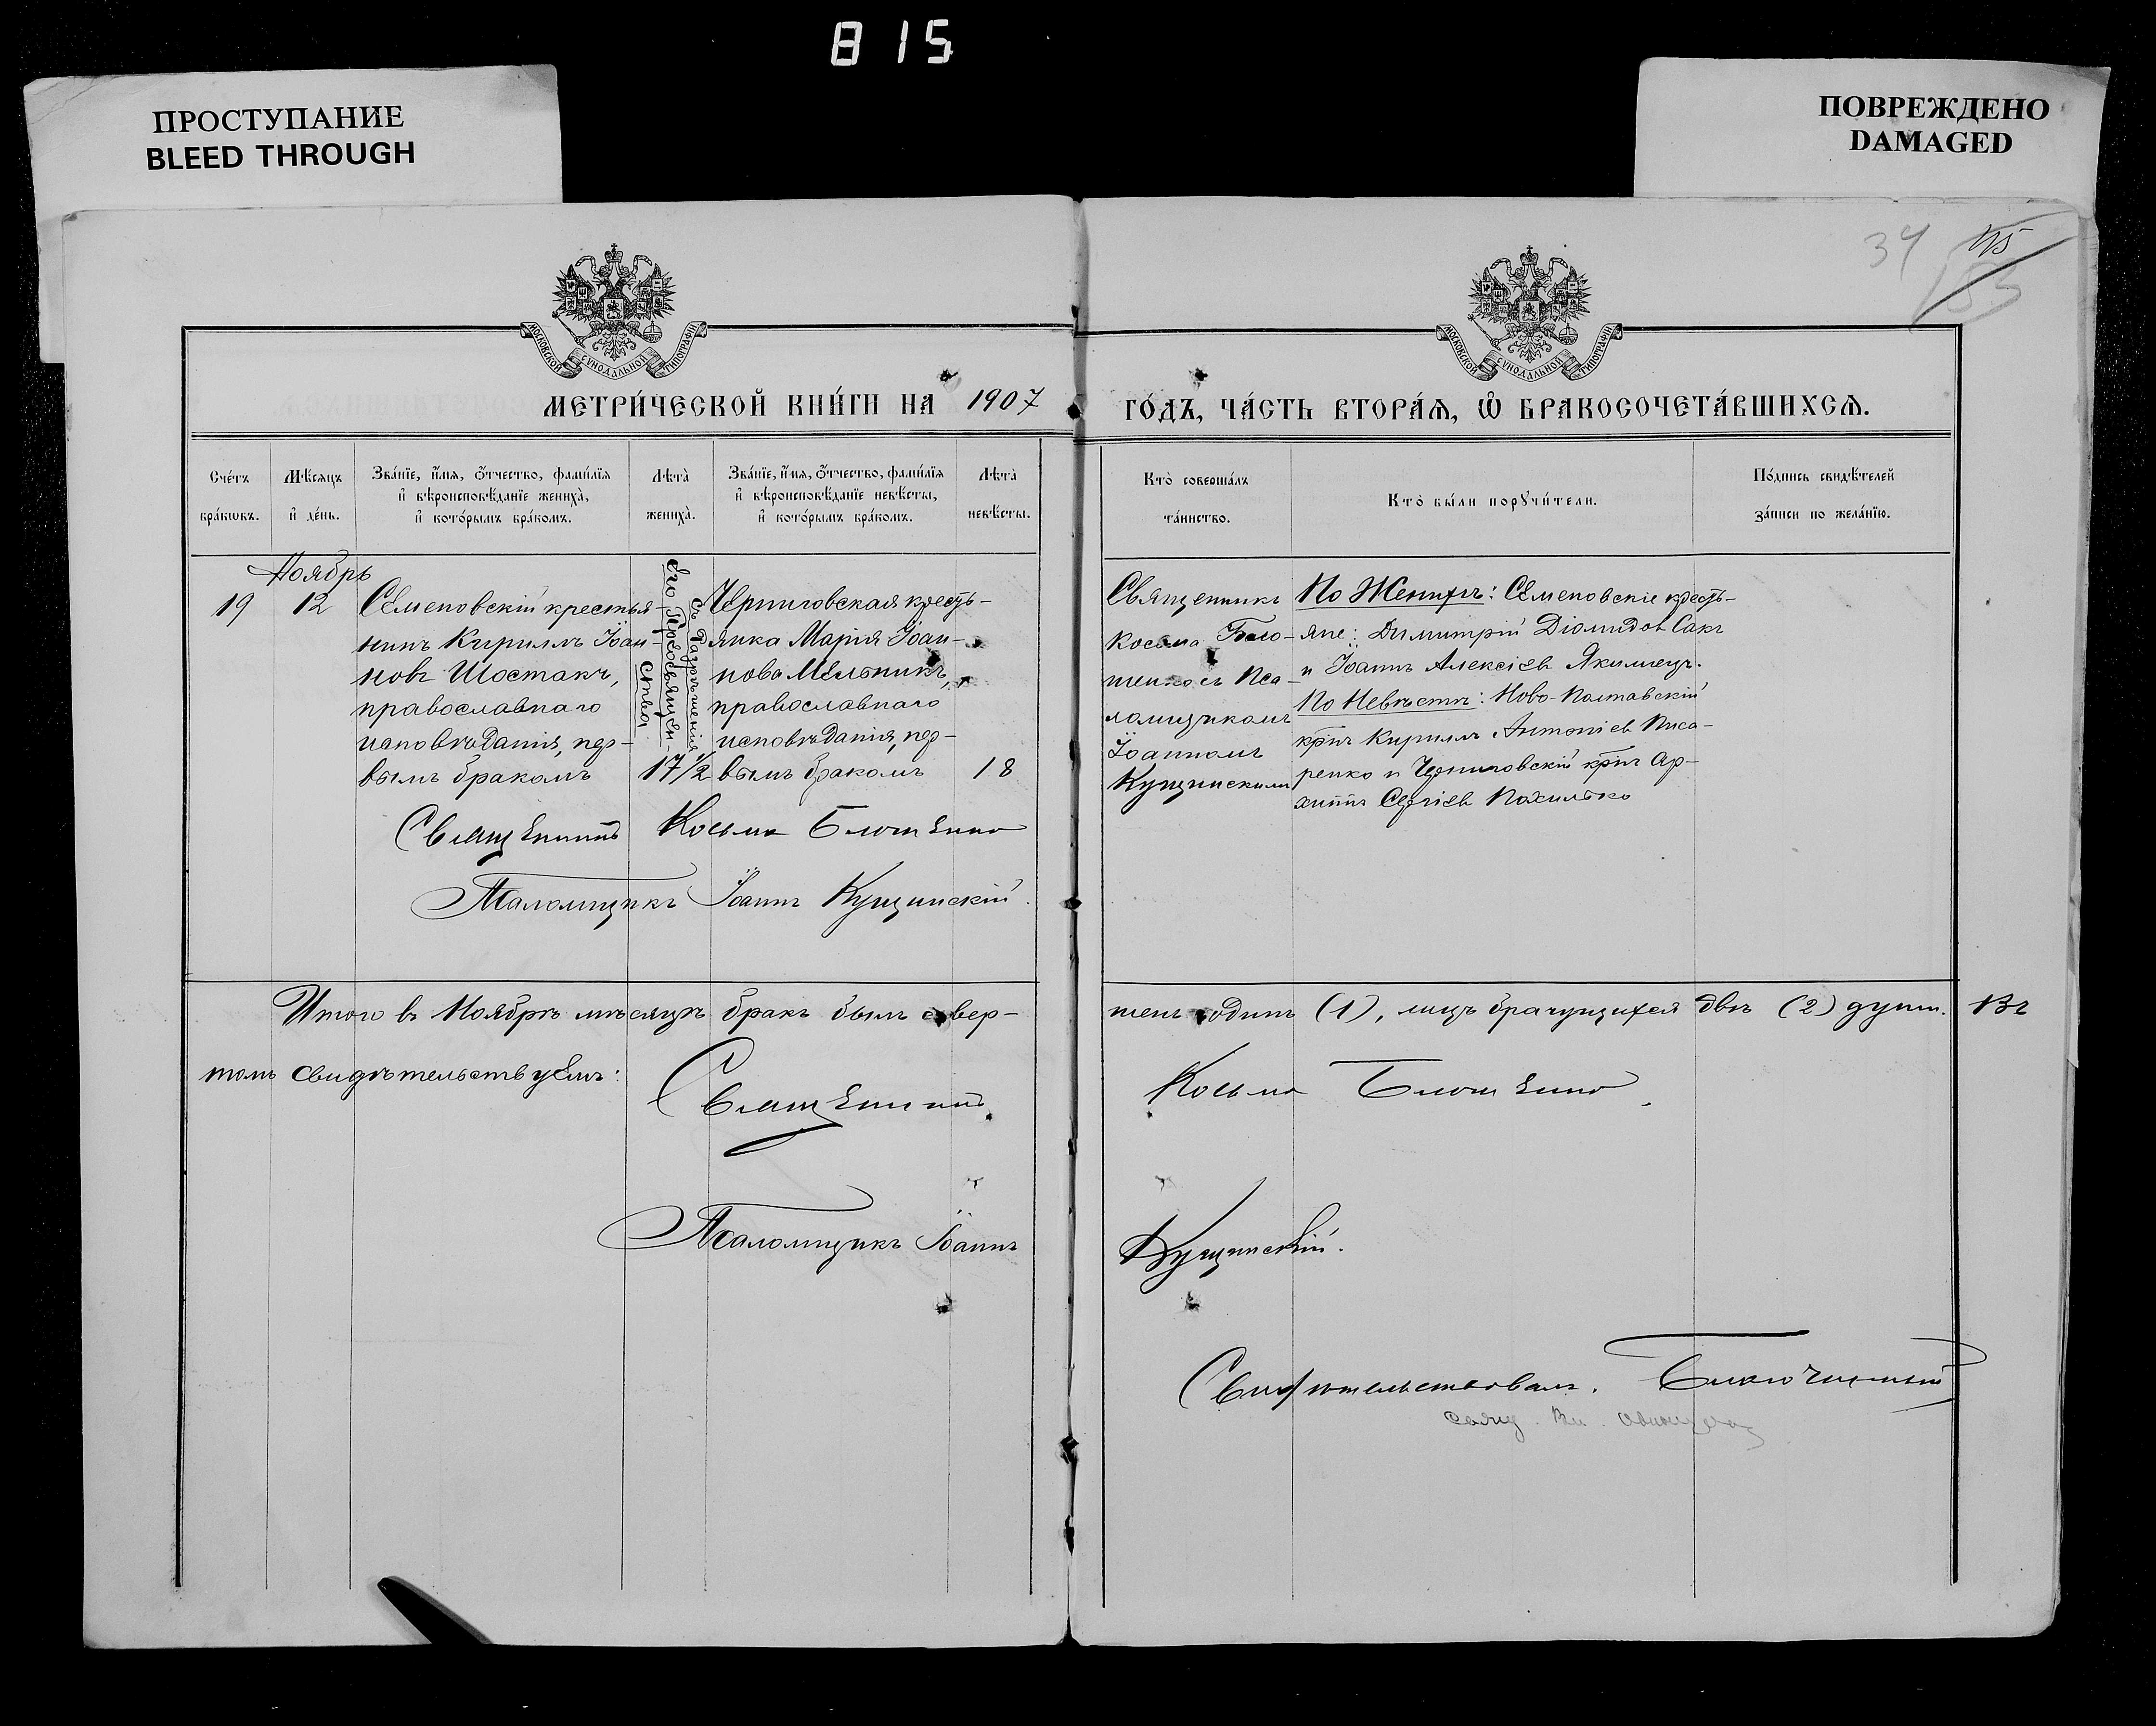 815
ПРОСТУПАНИЕ
BLEED THROUGH
ПОВРЕЖДЕНО
DAMAGED
34
МОСКОВСКОЙ СѴНОДАЛЬНОЙ ТИПОГРАФІИ
МОСКОВСКОЙ СѴНОДАЛЬНОЙ ТИПОГРАФІИ
МЕТРИ́ЧЕСКОЙ КНИ́ГИ НА 1907
ГО́ДЪ, ЧА́СТЬ ВТОРА́Ѧ, Ѽ БРАКОСОЧЕТА́ВШИХСѦ.
Сче́тъ бра́кѡвъ.
Мѣ́сяцъ и҆ де́нь.
Зва́нїе, и҆́мя, ѻ҆́тчество, фами́лїя
и҆ вѣроисповѣ́данїе жениха̀,
и҆ кото́рымъ бра́комъ.
Лѣта̀ жениха̀.
Зва́нїе, и҆́мя, ѻ҆́тчество, фами́лїя
и҆ вѣроисповѣ́данїе невѣ́сты,
и҆ кото́рымъ бра́комъ.
Лѣта̀ невѣ́сты.
Кто̀ соверша́лъ та́инство.
Кто̀ бы́ли порꙋчи́тели.
По́дпись свидѣ́телей
за́писи по жела́нїю.
Ноябрь
19
12
Семеновскій крестья-
нинъ Кириллъ Іоан-
новъ Шостакъ,
православнаго
исповѣданія, пер-
вымъ бракомъ
съ Разрѣшенія
Его Преосвящен-
ства
17 1/2
Черниговская кресть-
янка Марія Іоан-
нова Мельникъ,
православнаго
исповѣданія, пер-
вымъ бракомъ
18
Священникъ
Косьма Бло-
шенко съ Пса-
ломщикомъ
Іоанномъ
Кущинскимъ
По Женихѣ: Семеновскіе кресть-
яне: Димитрій Діомидов Сакъ
и Іоаннъ Алексіев Якимецъ.
По Невѣстѣ: Ново-Полтавскій
крнъ Кириллъ Антоніев Писа-
ренко и Черниговскій крнъ Ар-
хиппъ Сергіев Похилько
Священникъ Косьма Блошенко
Псаломщикъ Іоаннъ Кущинскій.
Итого въ Ноябрѣ мѣсяцѣ бракъ былъ совер-
шенъ одинъ (1), лицъ брачущихся двѣ (2) души. Въ
томъ свидѣтельствуемъ:
Священникъ Косьма Блошенко
Псаломщикъ Іоаннъ Кущинскій.
Свидѣтельствовалъ. Благочинный
свящ. Вл.